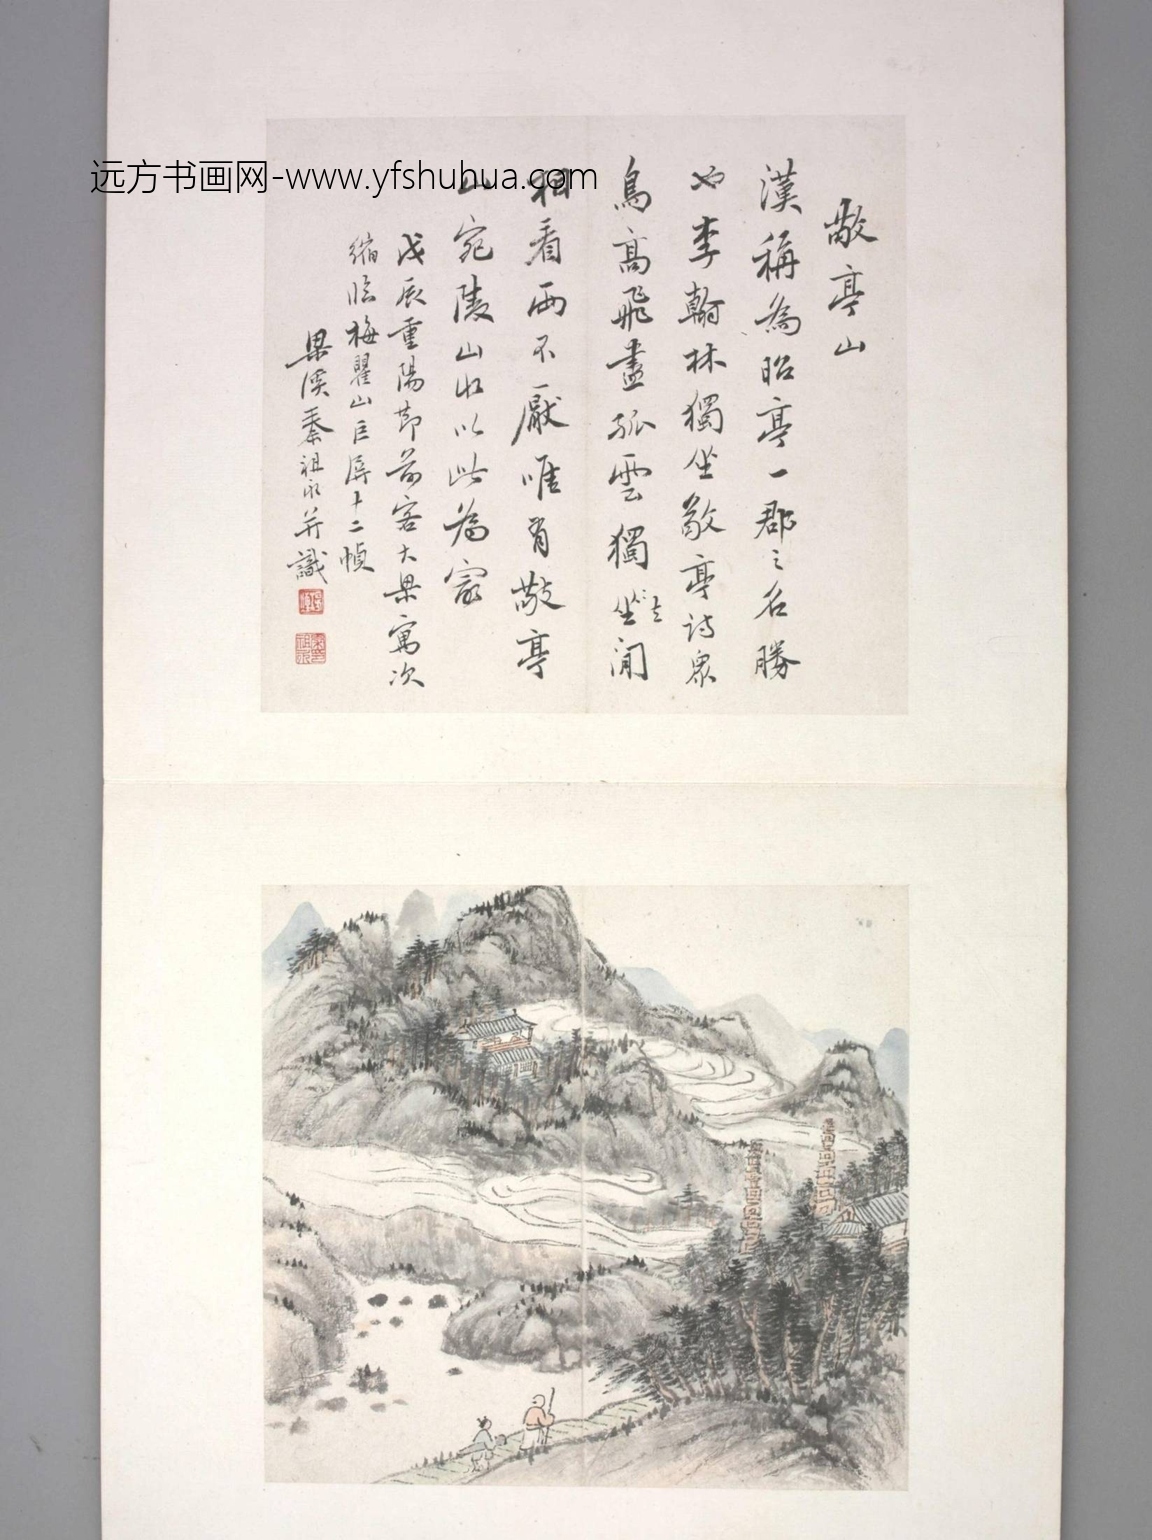 远方书画网-www.yfshuhua.com
敬亭山
漢稱為昭亭一郡之名勝
也李翰林獨坐敬亭詩眾
鳥高飛盡孤雲獨坐去閒
相看兩不厭唯有敬亭
山宛陵山水以此為冣
戊辰重陽節前客大梁寓次
縮臨梅瞿山巨屏十二幀
梁溪秦祖永并識